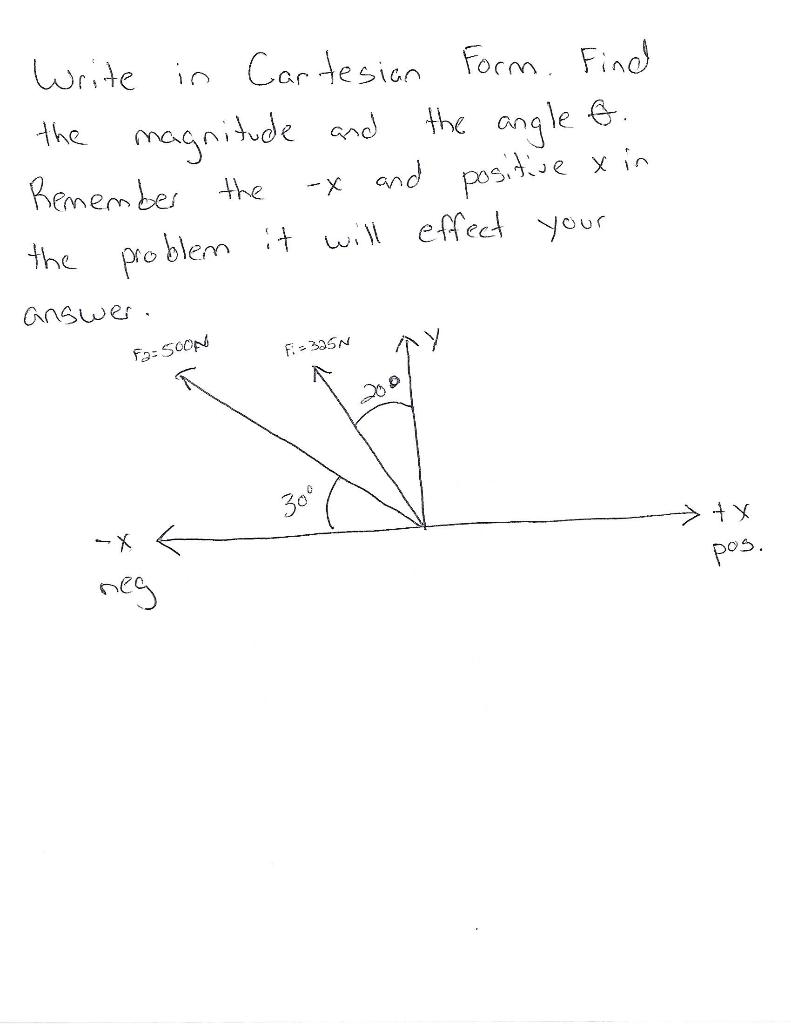 Write in Cartesian Form. Find
the magnitude and the angle θ.
Remember the -x and positive x in
the problem it will effect your
answer.
F2=500N
F1=325N
y
20°
30°
-x
neg
+x
pos.